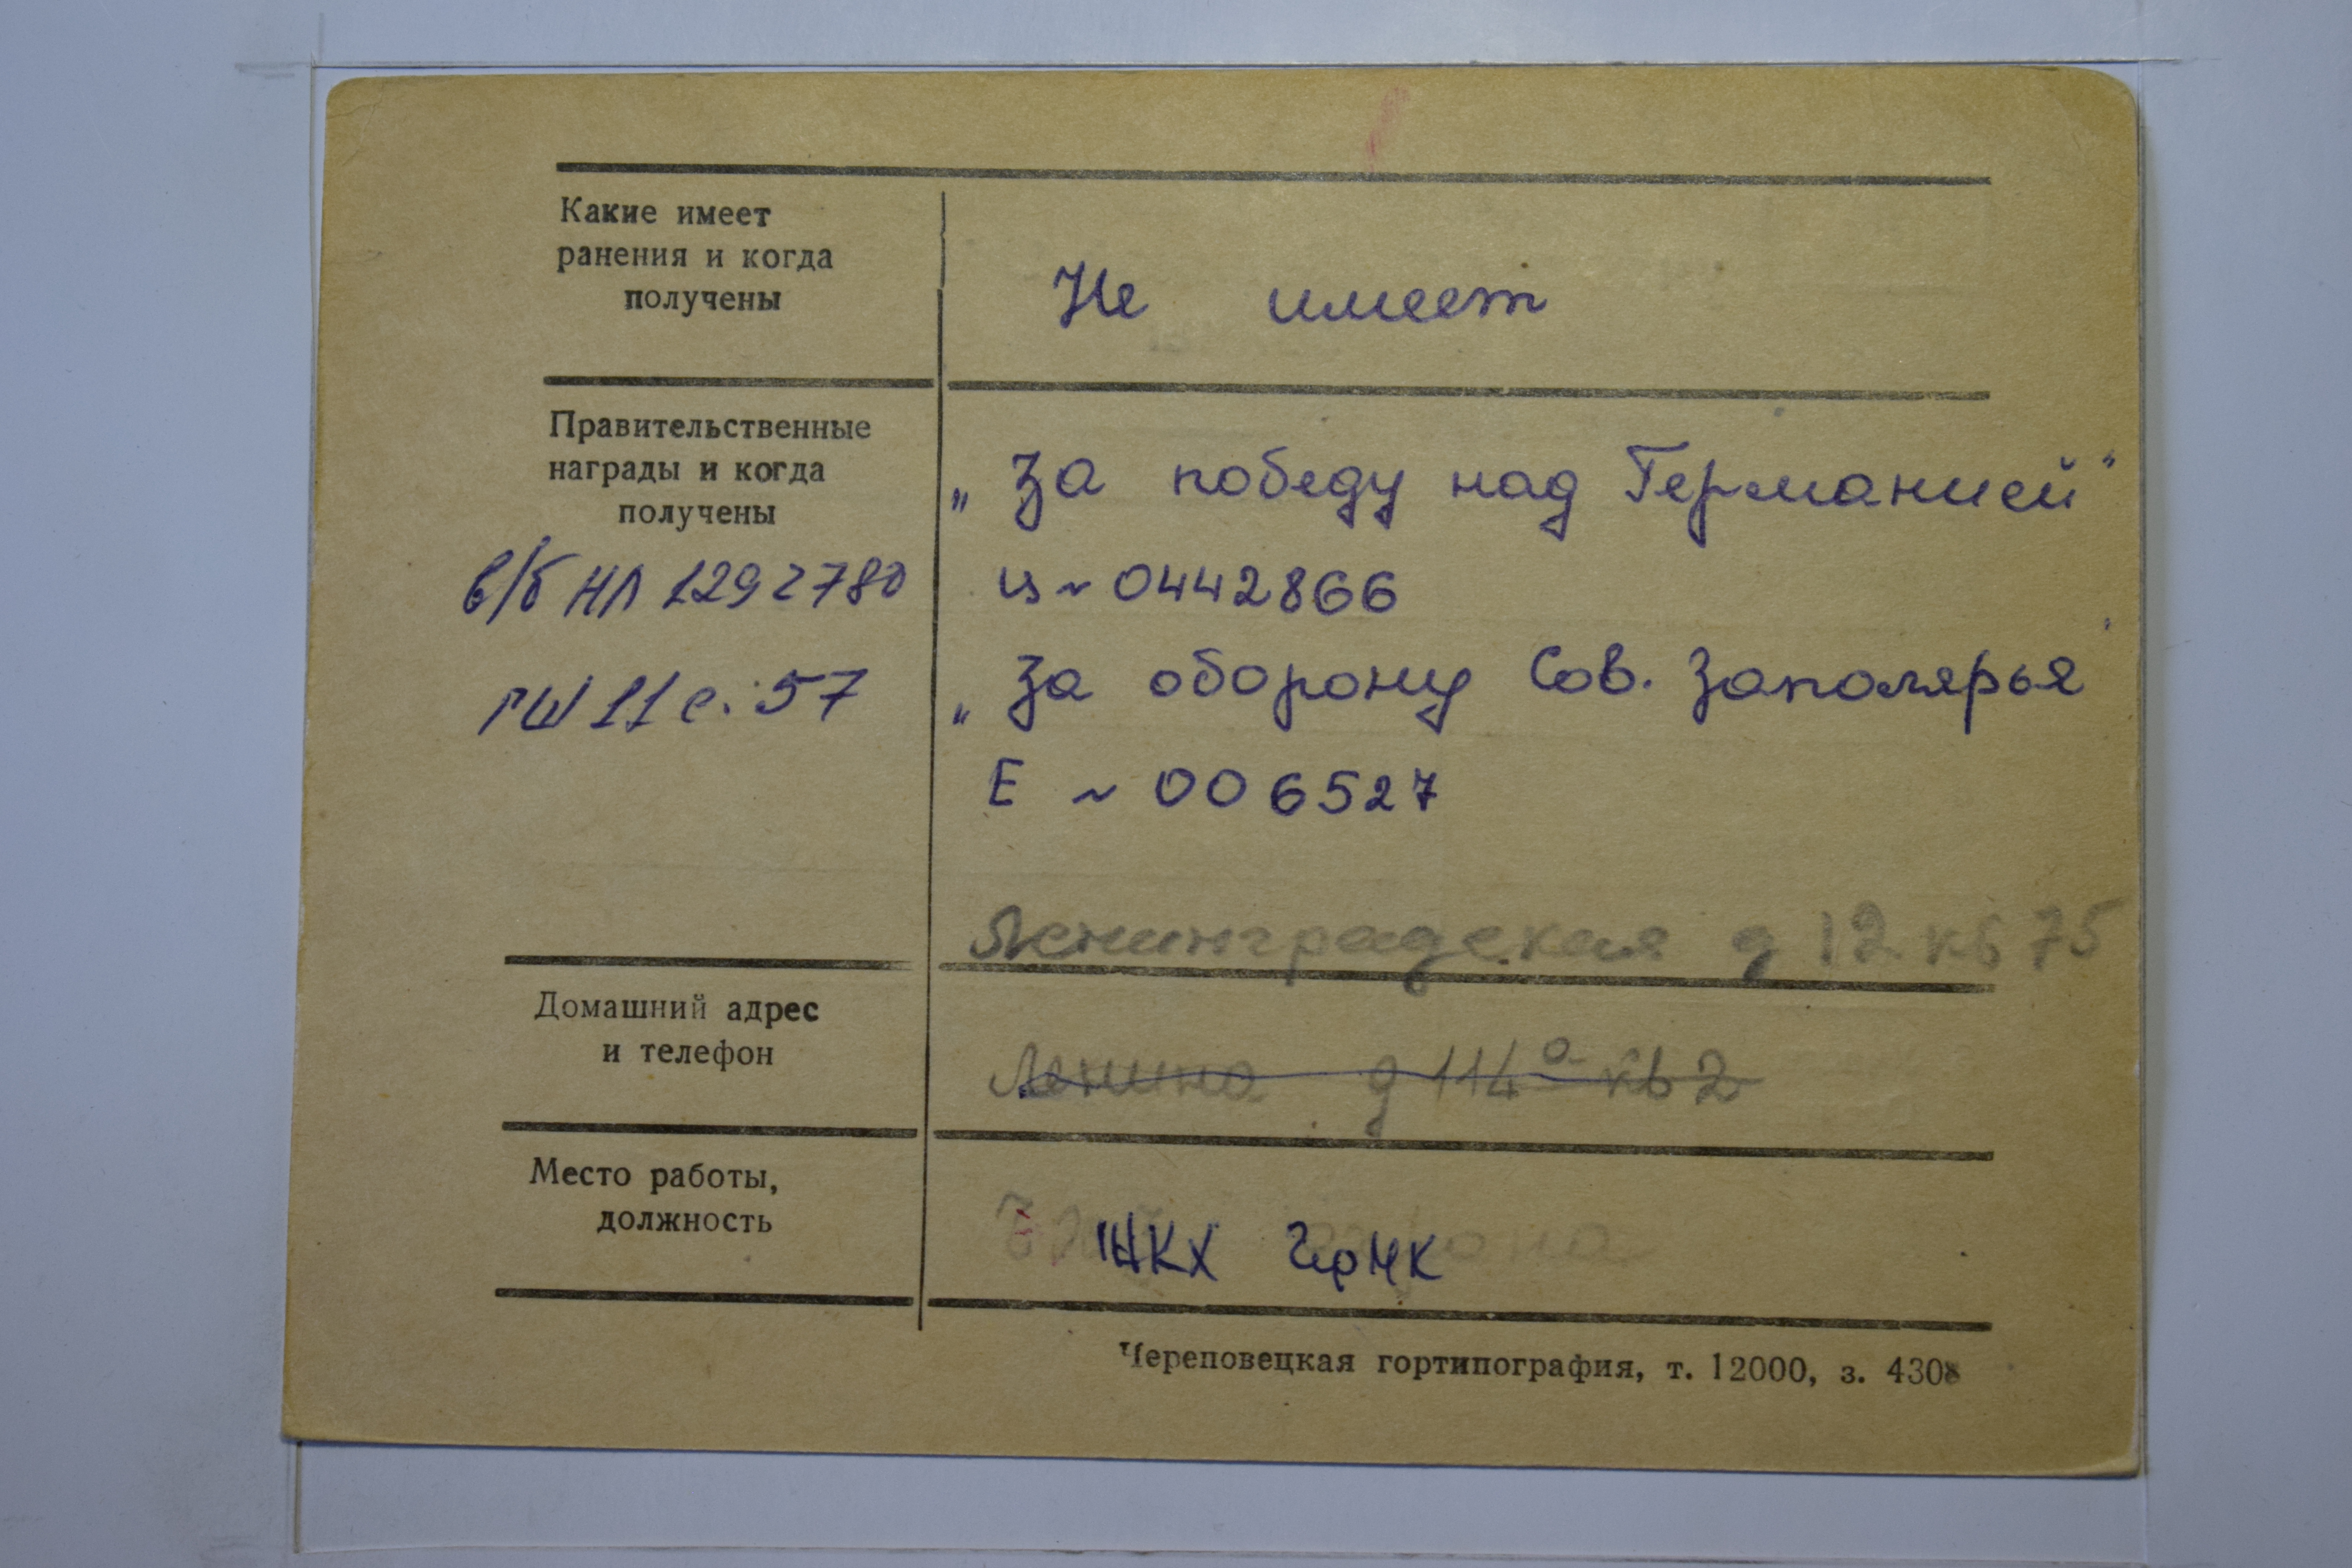 Какие имеет
ранения и когда
получены
Не имеет
Правительственные
награды и когда
получены
в/б НЛ 1292780
ГШ 11 с. 57
„За победу над Германией"
№ 0442866
„За оборону Сов. Заполярья"
Е № 006527
Ленинградская д 12 кв 75
Домашний адрес
и телефон
Ленина д 114а кв 2
Место работы,
должность
ЖКХ ЧрМК
Череповецкая гортипография, т. 12000, з. 4308